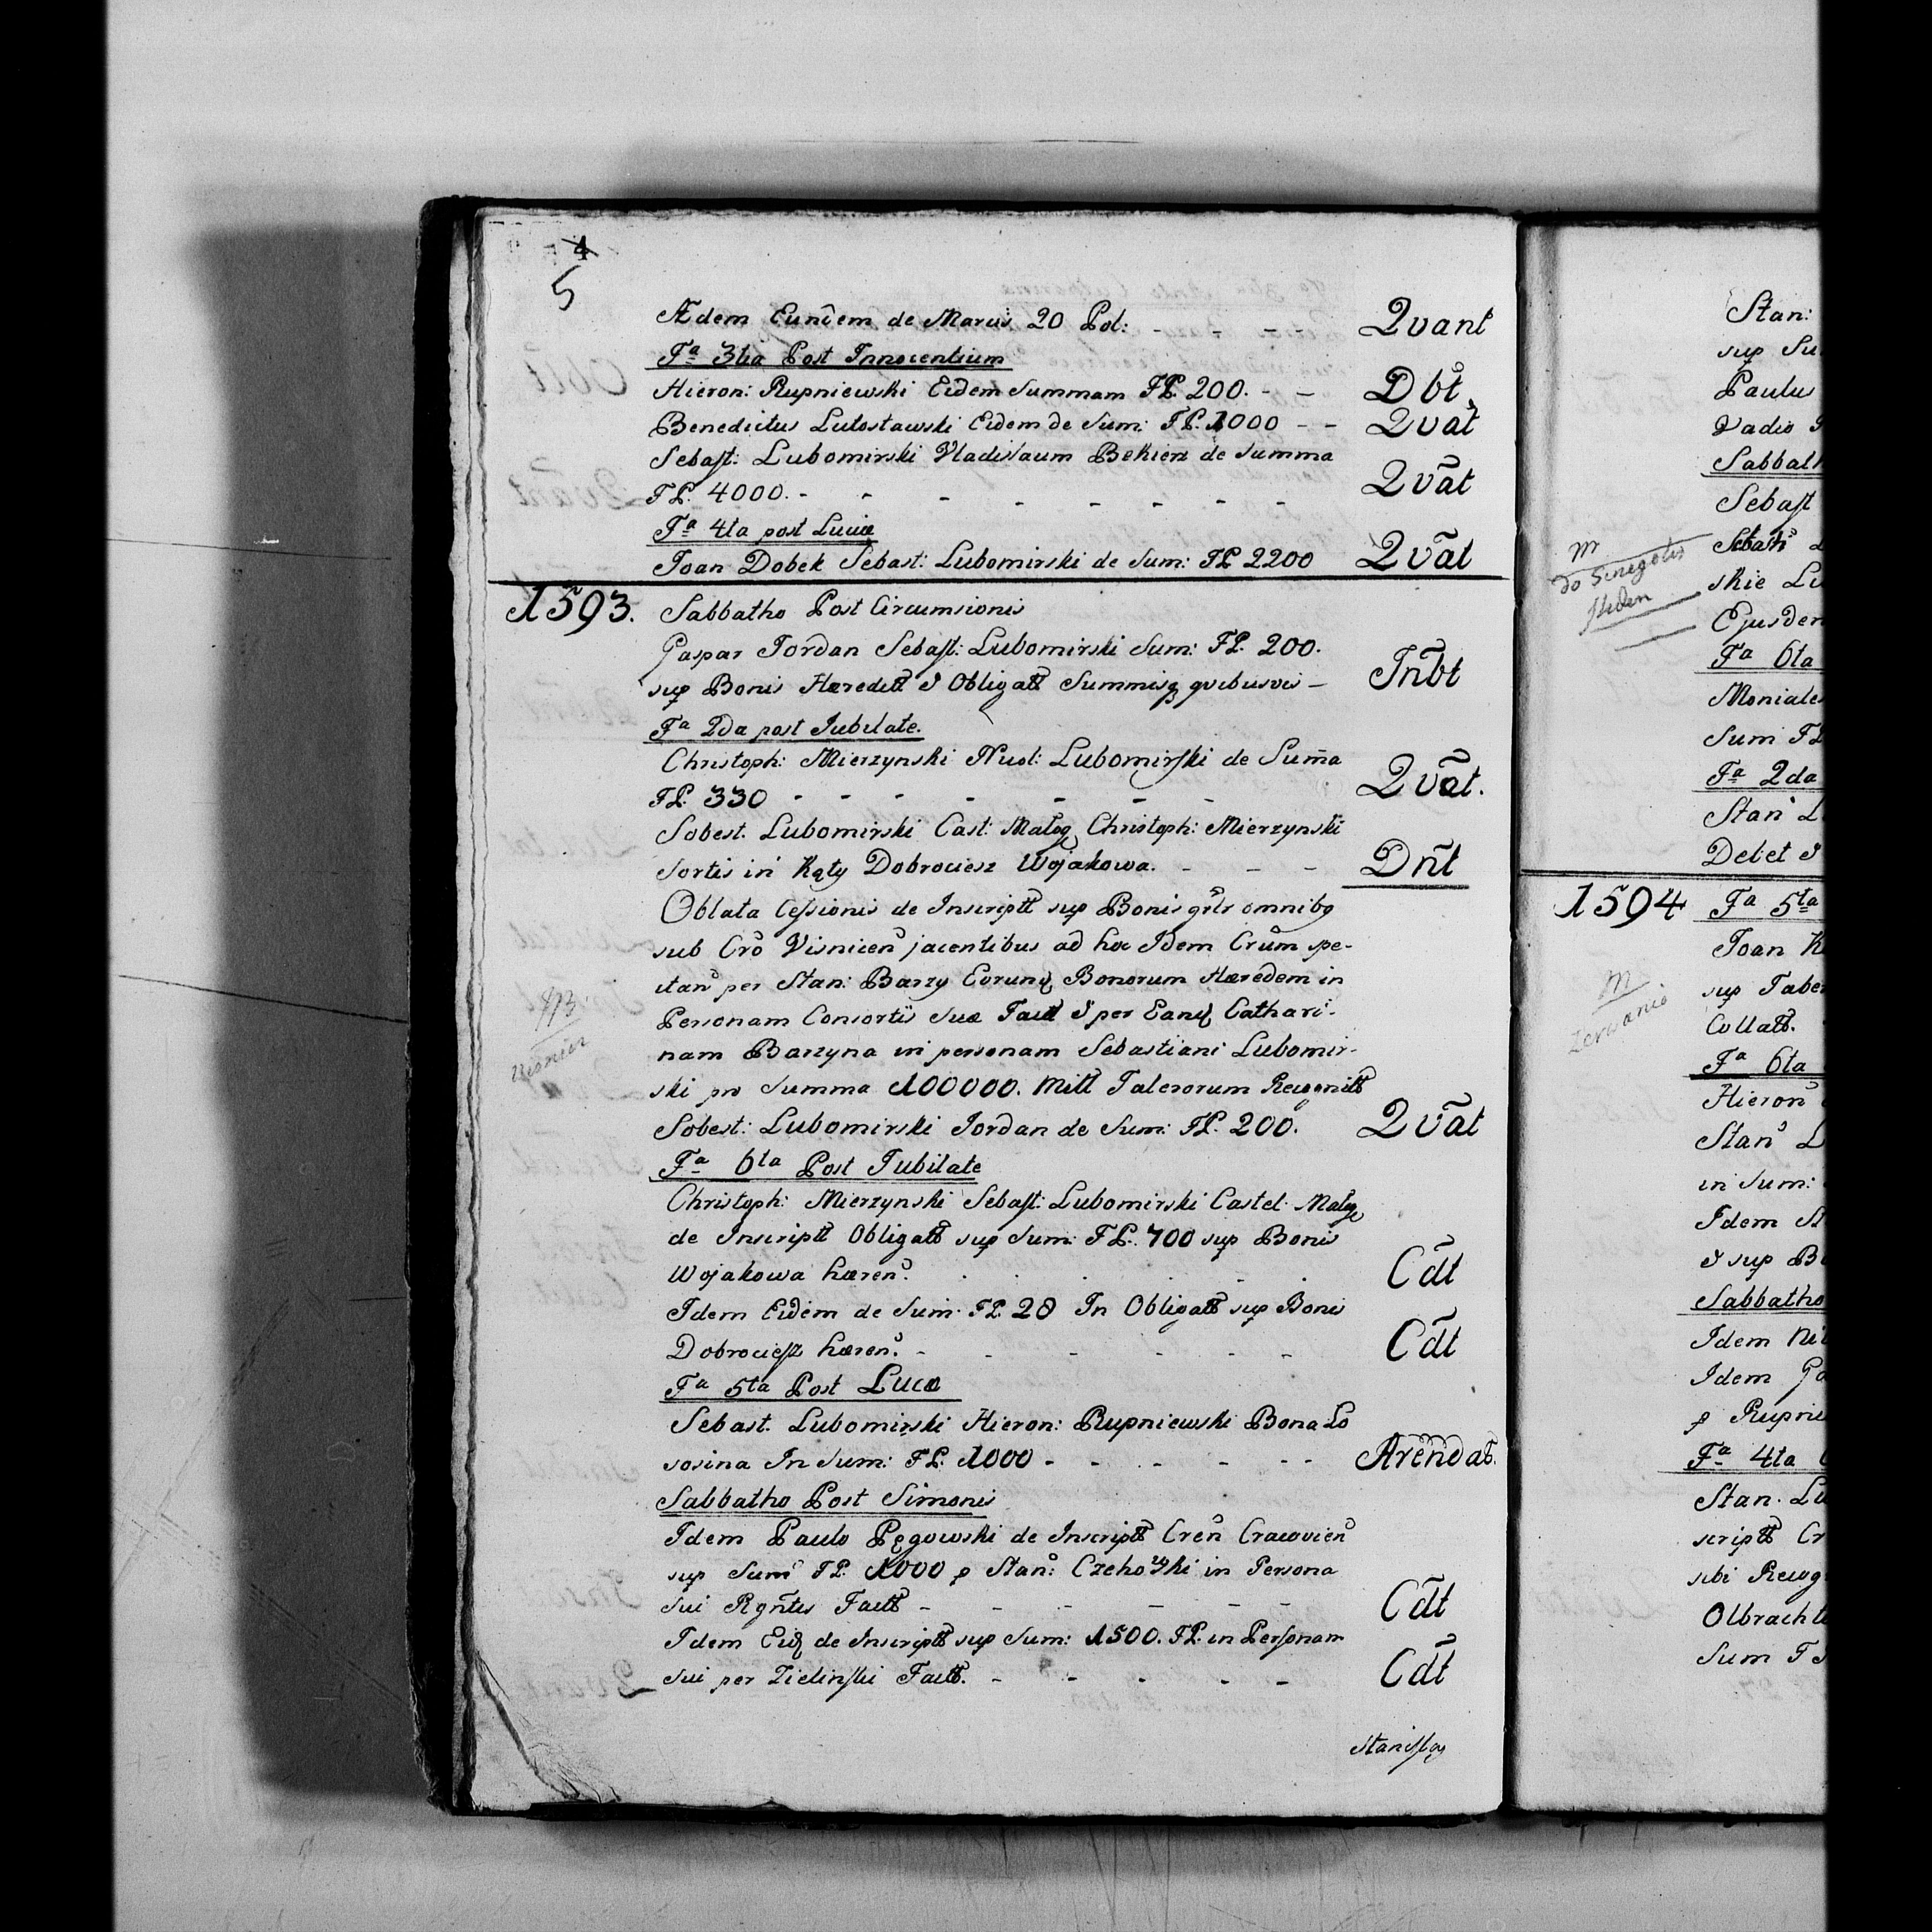 4
5
Ædem Eundem de Marcis 20 Pol: - - - - Qvant
Fa 3tia Post Innocentium
Hieron: Rupniewski Eidem Summam FP. 200. - - Dbt
Benedictus Lutostawski Eidem de Sum: FP. 1000 - - Qvat
Sebast: Lubomirski Vladislaum Bekiem de Summa
FP. 4000. - - - - - - - - Qvat
Fa 4ta post Luciæ
Joan Dobek Sebast: Lubomirski de Sum: FP 2200 Qvat
1593. Sabbatho Post Circumsionis
Gaspar Jordan Sebast: Lubomirski Sum: FP. 200.
sup Bonis Hæreditt & Obligatt Summisq qvibusvis - Inbt
Fa 2da post Jubilate.
Christoph: Mierzynski Lubomirski de Suma
FP. 330 - - - - - - - Qvat.
Sobest. Lubomirski Cast: Małog Christoph: Mierzynski
Sortis in Kąty Dobrociesz Wojakowa. - - - Dnt
Oblata Cessionis de Inscriptt sup Bonis grlr omnibg
sub Cro Visnicen jacentibus ad hoc Idem Crum spe-
ctan per Stan: Barzy Eorunq Bonorum Hæredem in
Personam Consortis suæ Factt & per Eanq Cathari-
nam Barzyna in personam Sebastiani Lubomir-
ski pro Summa 100000. Mill Talerorum Recognitt
Sobest: Lubomirski Jordan de Sum: FP. 200. Qvat
Fa 6ta Post Jubilate
Christoph: Mierzynski Sebast: Lubomirski Castel. Małog
de Inscriptt Obligatt sup Sum: FP. 700 sup Bonis
Wojakowa hæren. - - - - - - Cdt
Idem Eidem de Sum. FP. 28 In Obligatt sup Bonis
Dobrociesz hæren. - - - - - - Cdt
Fa 5ta Post Lucæ
Sebast. Lubomirski Hieron: Rupniewski Bona Ło
sosina In Sum: FP. 1000 - - - - - - Arendat.
Sabbatho Post Simonis
Idem Paulo Pęgowski de Inscriptt Cren Cracovien
sup Sum FP. 1000 p Stan: in Persona
sui Rgntis Factt - - - - - - Cdt
Idem Eiq de Inscriptt sup Sum: 1500. FP. in Personam
sui per Zielinski Factt. - - - - - Cdt
Stan:
sup Su
Paulu
Vadio
Sabbath
Sebast
skie Lu
Ejusdem
Fa 6ta
Moniale
Sum FP
Fa 2da
Stan L
Debet &
1594 Fa 5ta
Joan K
sup Taber
Collatt.
Fa 6ta
Hieron
Stan L
in Sum:
Idem St
& sup B
Sabbatho
Idem
Idem Ga
p Rupni
Fa 4ta
Stan. Lu
scriptt Cr
sibi Recog
Olbracht
Sum F